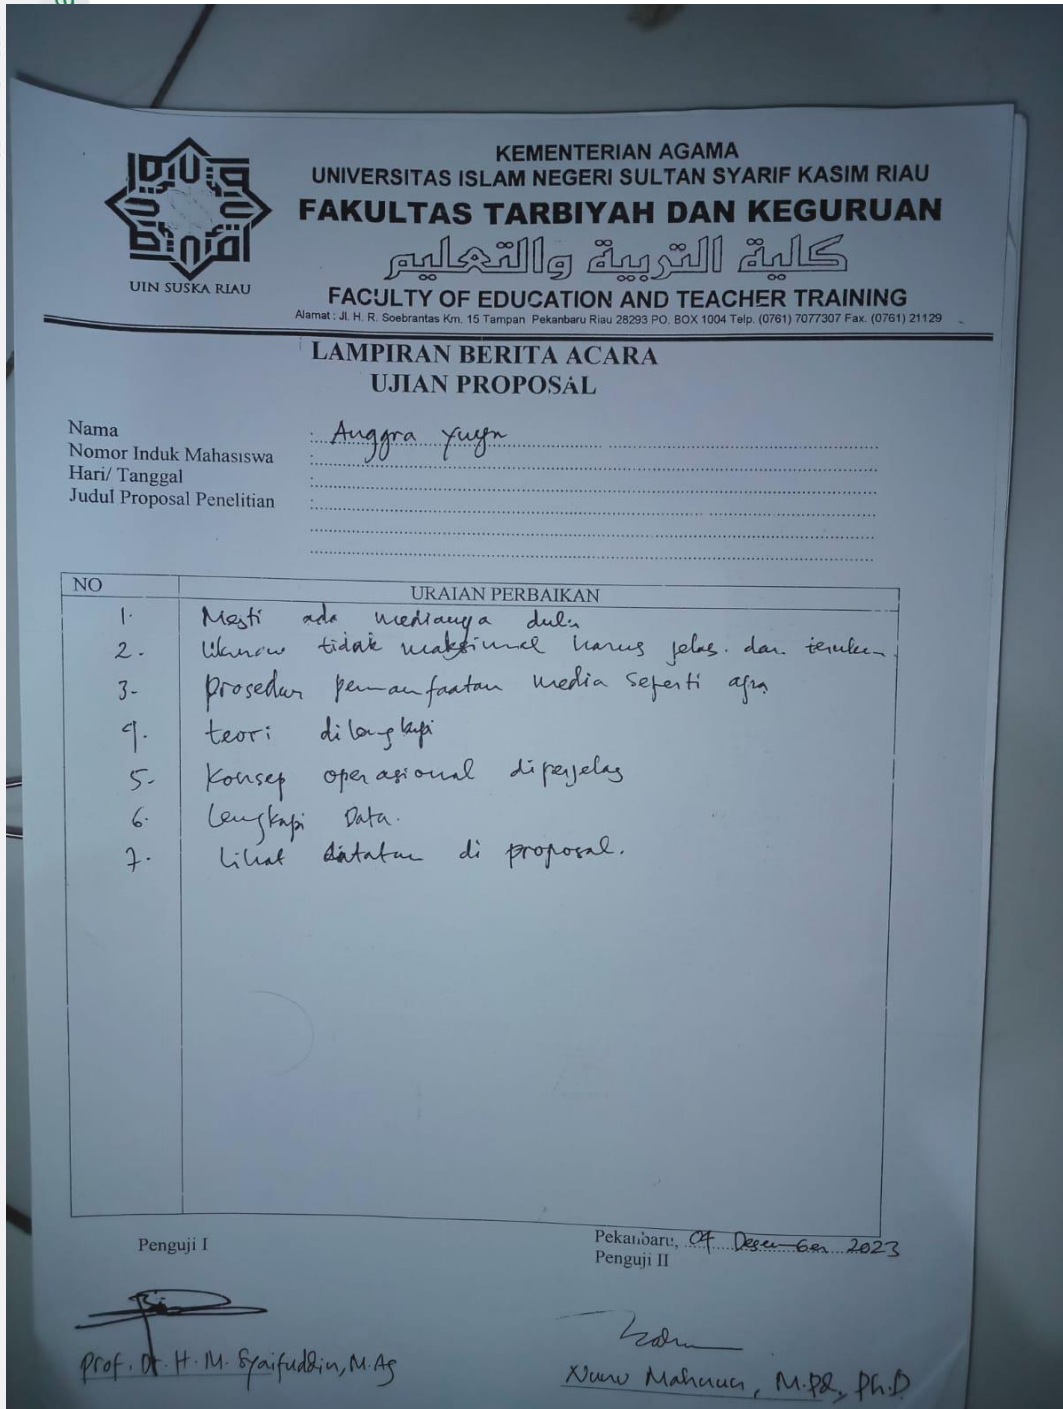 KEMENTERIAN AGAMA
UNIVERSITAS ISLAM NEGERI SULTAN SYARIF KASIM RIAU
FAKULTAS TARBIYAH DAN KEGURUAN
كلية التربية والتعليم
FACULTY OF EDUCATION AND TEACHER TRAINING
Alamat : Jl. H. R. Soebrantas Km. 15 Tampan Pekanbaru Riau 28293 PO. BOX 1004 Telp. (0761) 7077307 Fax. (0761) 21129
UIN SUSKA RIAU
LAMPIRAN BERITA ACARA
UJIAN PROPOSAL
Nama : Anggra
Nomor Induk Mahasiswa :
Hari/ Tanggal :
Judul Proposal Penelitian :
NO URAIAN PERBAIKAN
1. Mesti ada medianya dulu
2. tidak maksimal harus jelas dan
3. prosedur pemanfaatan media seperti apa
4. teori dilengkapi
5. Konsep operasional diperjelas
6. Lengkapi Data.
7. Lihat di proposal.
Pekanbaru, 04 Desember 2023
Penguji I Penguji II
Prof. Dr. H. M. Syaifuddin, M.Ag
M.Pd, Ph.D